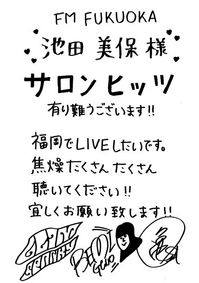 FM FUKUOKA
池田 美保 様
サロンヒッツ
有り難うございます!!
福岡でLIVEしたいです。
焦燥たくさんたくさん
聴いてください!!
宜しくお願い致します!!